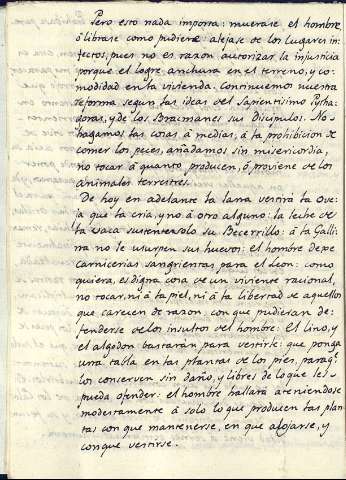 Pero esto nada importa: muerase el hombre
ô librase como pudiere: alejase de los lugares in-
fectos, pues no es razon autorizar la injusticia
porque el logre anchura en el terreno, y co-
modidad en la vivienda. Continuemos nuestra
reforma segun las ideas del Sapientisimo Pytha-
goras, y de los Bracmanes sus Discipulos. No
hagamos las cosas â medias, â la prohibicion de
comer los peces, añadamos sin misericordia,
no tocar â quanto, producen, ô proviene de los
animales terrestres.
De hoy en adelante la lana vestirà la Ove-
ja que la cria, y no â otro alguno: la leche de
la vaca sustente solo su Becerrillo: â la Galli-
na no le usurpen sus huevos: el hombre dexe
carnicerias sangrientas para el Leon: como
quiera, es digna cosa de un viviente racional,
no tocar, ni â la piel, ni â la libertad de aquellos
que carecen de razon, con que pudieran de-
fenderse de los insultos del hombre. El lino, y
el algodon bastaràn para vestirle: que ponga
una tabla en las plantas de los pies, paraqe.
los conserven sin daño, y libres de lo que les
pueda ofender: el hombre hallarà ateniendose
moderatamente â solo lo que producen las plan-
tas con que mantenerse, en que alojarse, y
con que vestirse.